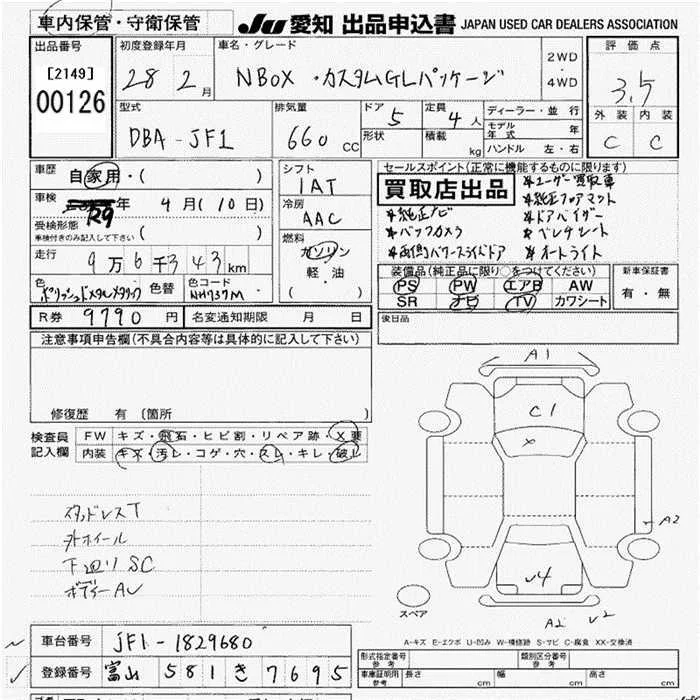 車内保管・守衛保管
JU 愛知 出品申込書 JAPAN USED CAR DEALERS ASSOCIATION
出品番号 初度登録年月 車名・グレード 評価点
[2149] 00126 28 2月 NBOX・カスタムGLパッケージ 2WD・4WD 3.5
型式 排気量 ドア 5 定員 4人 ディーラー・並行 外装 内装
DBA-JF1 660cc 形状 積載 kg モデル年式 年 C C
ハンドル 左・右
車歴 自家用・( ) シフト セールスポイント(正常に機能するものに限ります)
車検 R9年 4月(10日) 1AT 買取店出品 *ユーザー買取車
受検形態 冷房 *純正ナビ *純正フロアマット
車検付きのみ記入して下さい ( ) AAC *バックカメラ *ドアバイザー
燃料 *両側パワースライドドア *オートライト
走行 9万6千343km ガソリン
軽・油
( )
色 ポリッシュドメタルメタリック 色替 色コード NH737M
装備品(純正品に限り○をつけてください) 新車保証書
PS PW エアB AW 有・無
SR ナビ TV カワシート
R券 9790円 名変通知期限 月 日 後日品
注意事項申告欄(不具合内容等は具体的に記入して下さい)
修復歴 有(箇所 )
検査員記入欄 FW キズ・飛石・ヒビ割・リペア跡・X要
内装 キズ・汚レ・コゲ・穴・スレ・キレ・破レ
A1
C1
X
A2
√4
A2 √2
スペア
スタッドレスT
外ホイール
下廻りSC
ボディーAU
A-キズ E-エクボ U-凹み W-補修跡 S-サビ C-腐食 XX-交換済
車台番号 JF1-1829680
登録番号 富山 581 き 7695
形式指定番号 参考 類別区分番号 参考
車庫証明用 参考 長さ cm 幅 cm 高さ cm